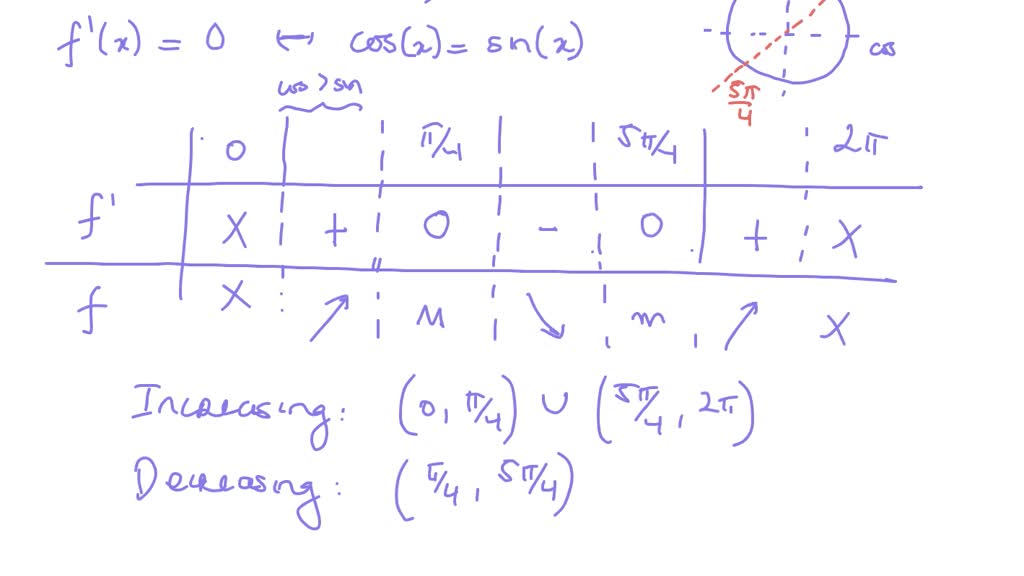 f'(x) = 0 ↔ cos(x) = sin(x)
cos
5π/4
cos > sin
0 π/4 5π/4 2π
f' X + 0 - 0 + X
f X ↗ M ↘ m ↗ X
Increasing: (0, π/4) ∪ (5π/4, 2π)
Decreasing: (π/4, 5π/4)